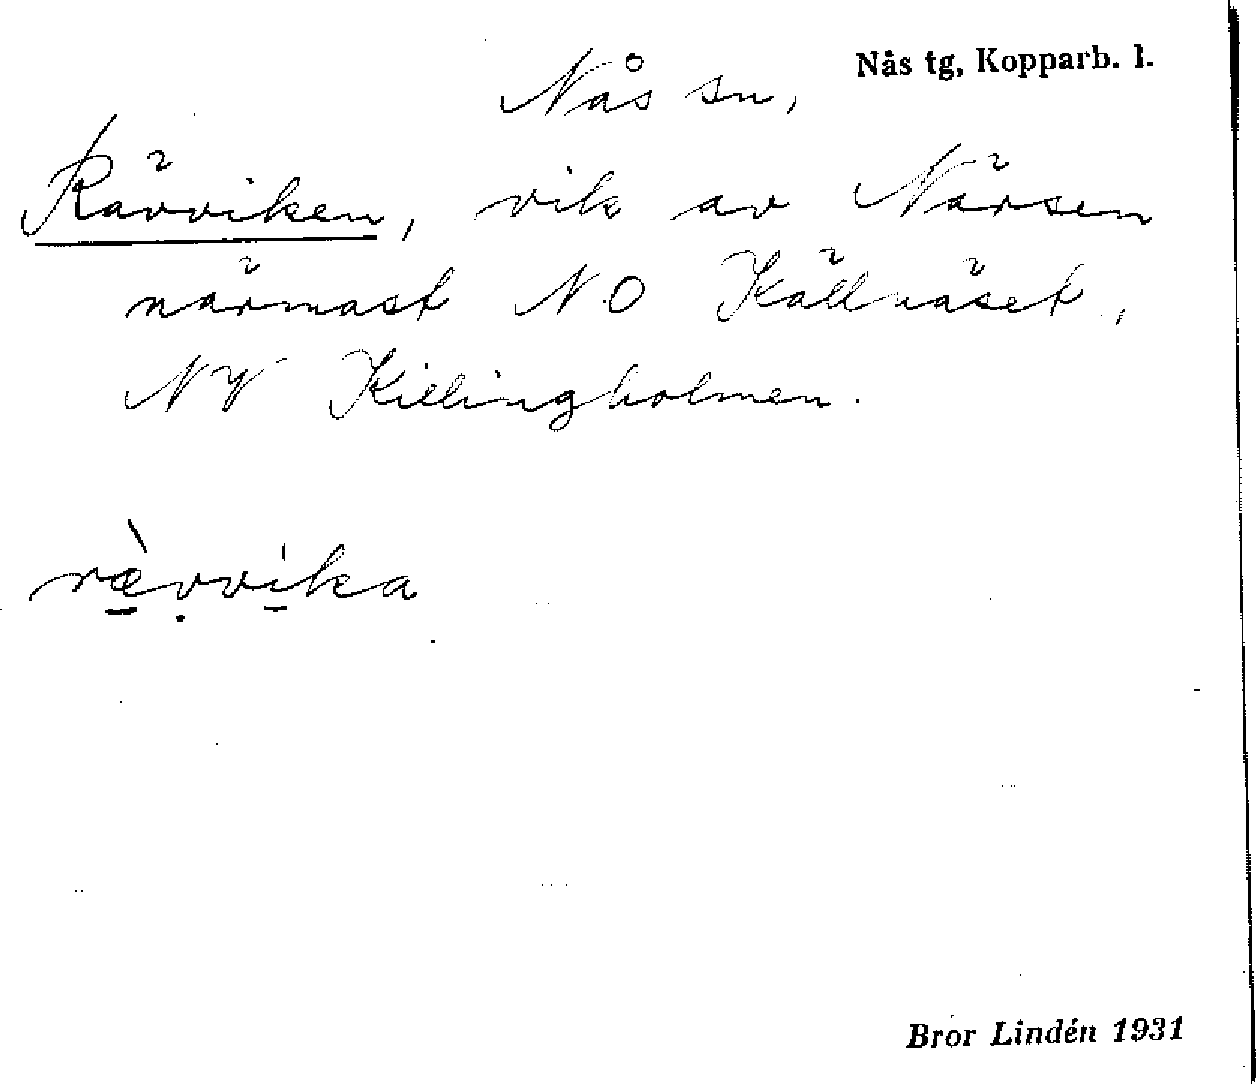 Nås tg, Kopparb. l.
Nås sn,
Rävviken, vik av Närsen
närmast NO Källnäset,
NV Killingholmen.
rævvika
Bror Lindén 1931